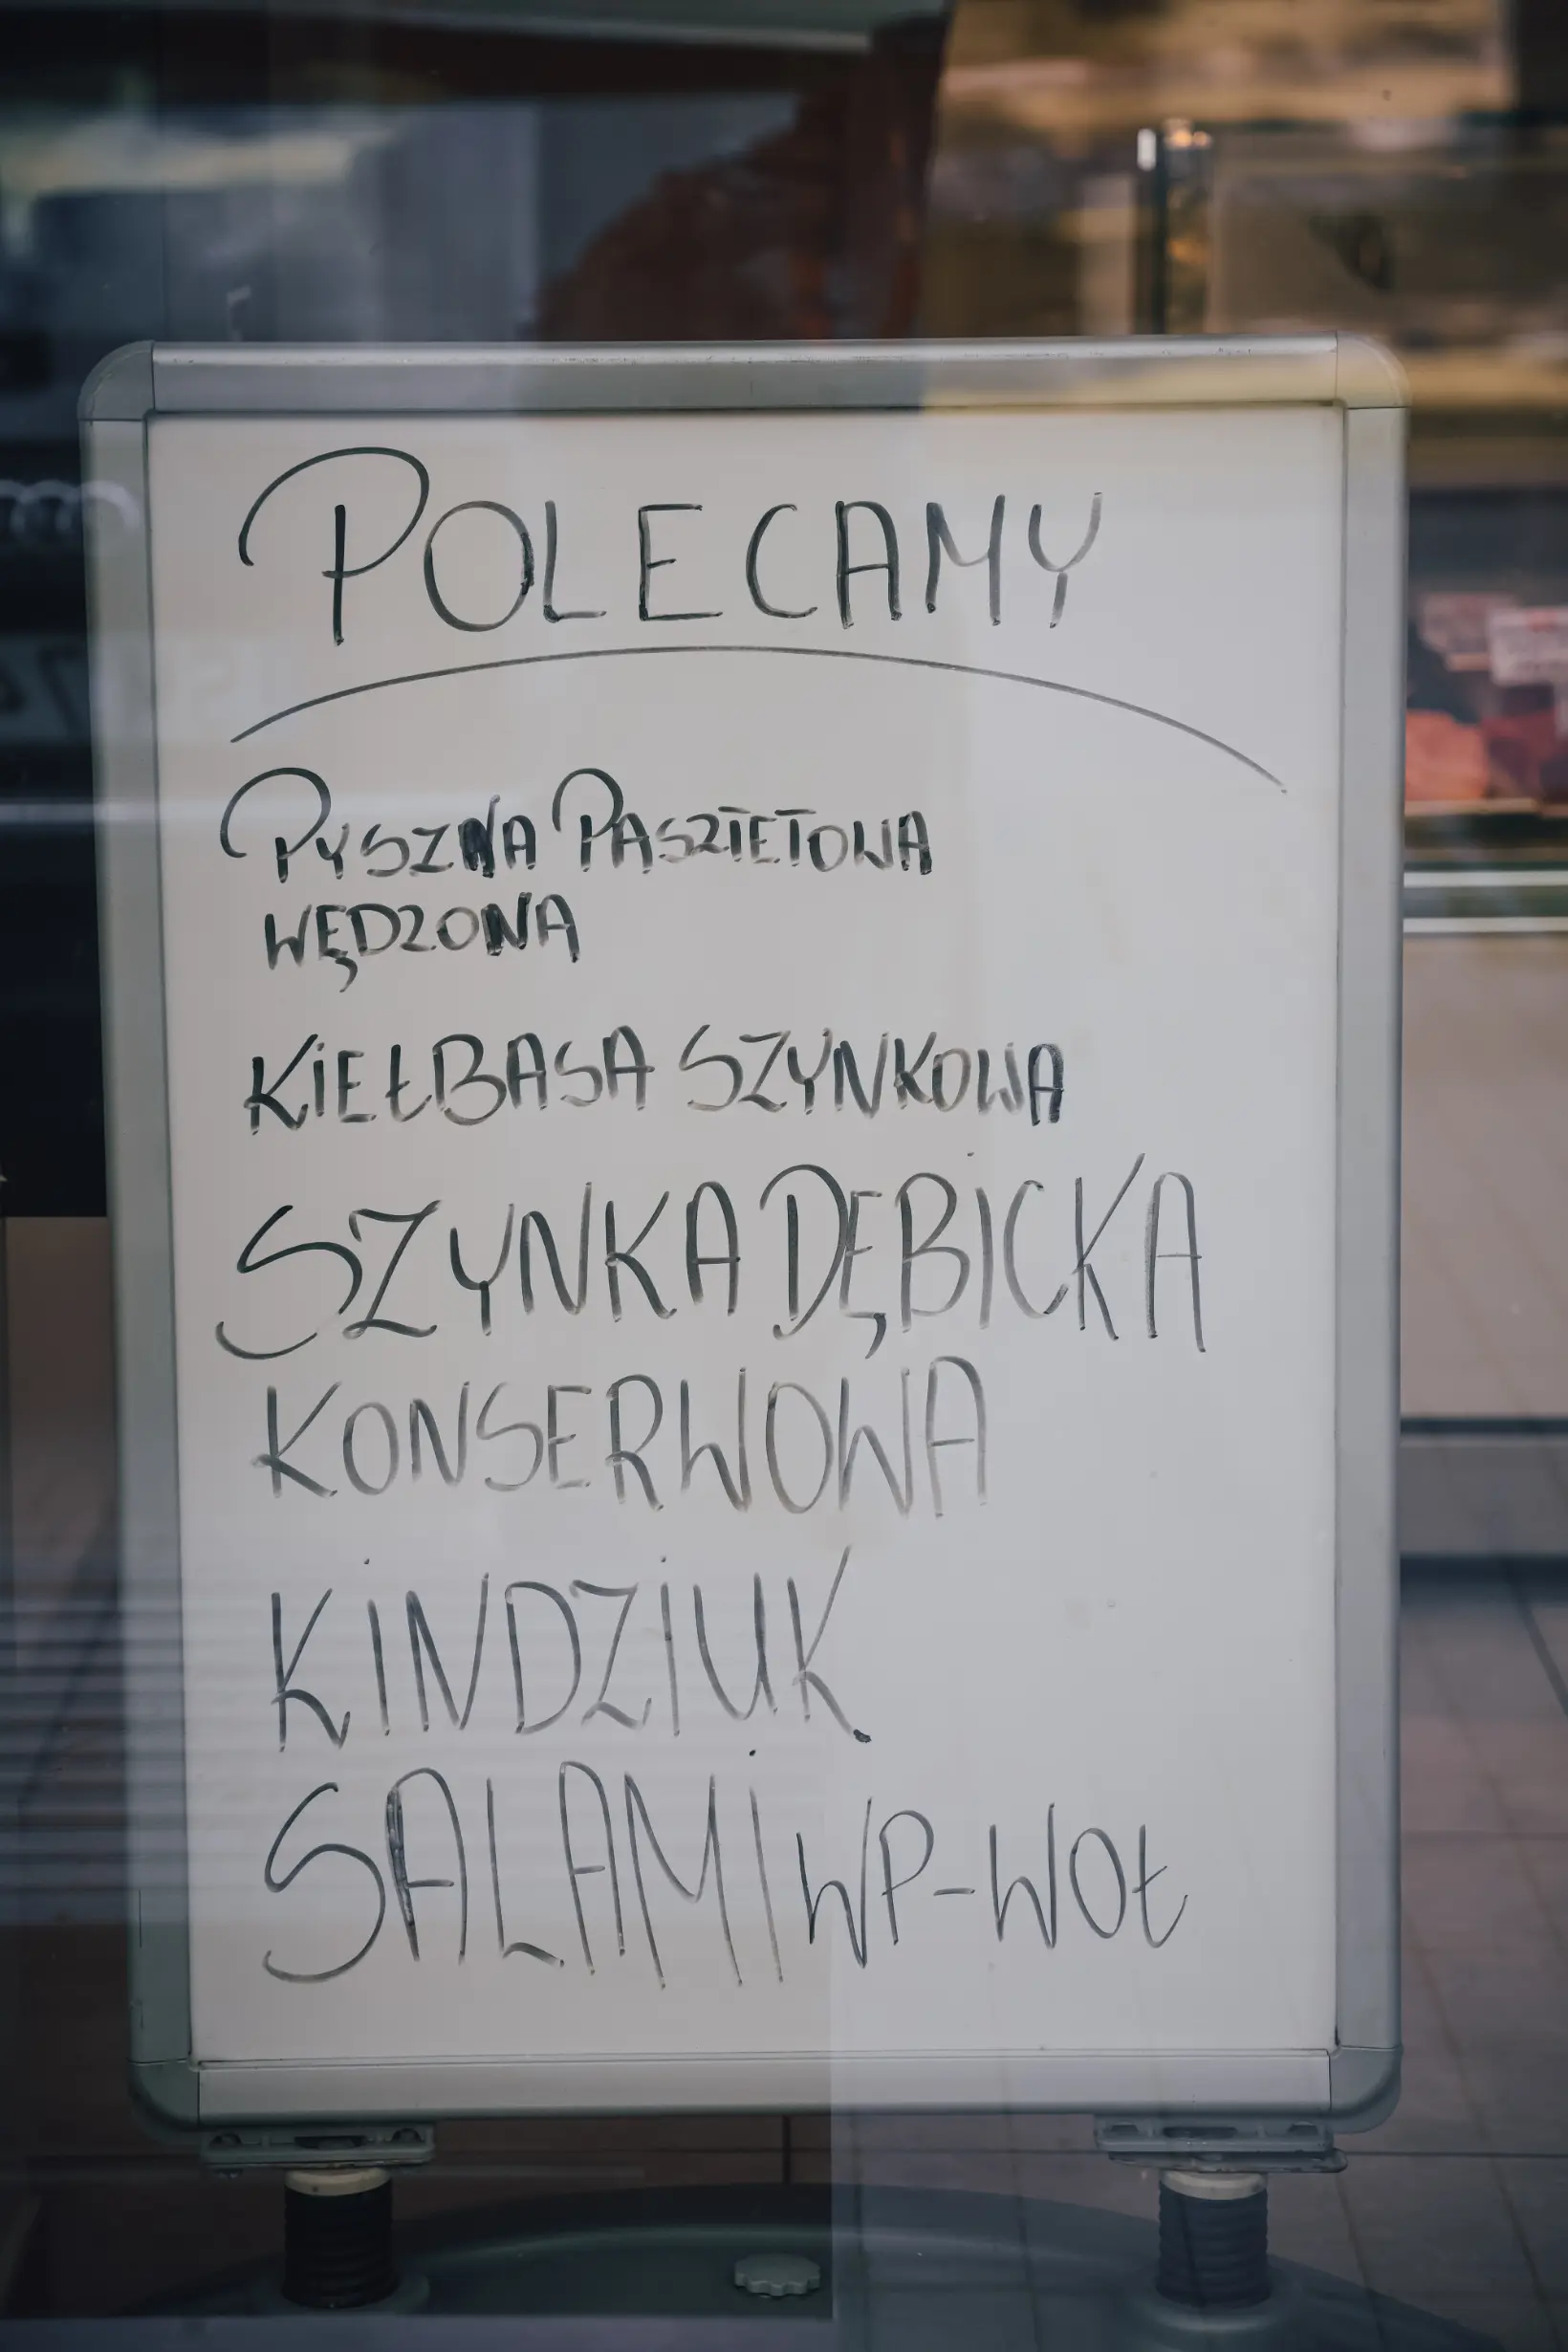 POLECAMY
PYSZNA PASZTETOWA
WĘDZONA
KIEŁBASA SZYNKOWA
SZYNKA DĘBICKA
KONSERWOWA
KINDZIUK
SALAMI WP-WOŁ